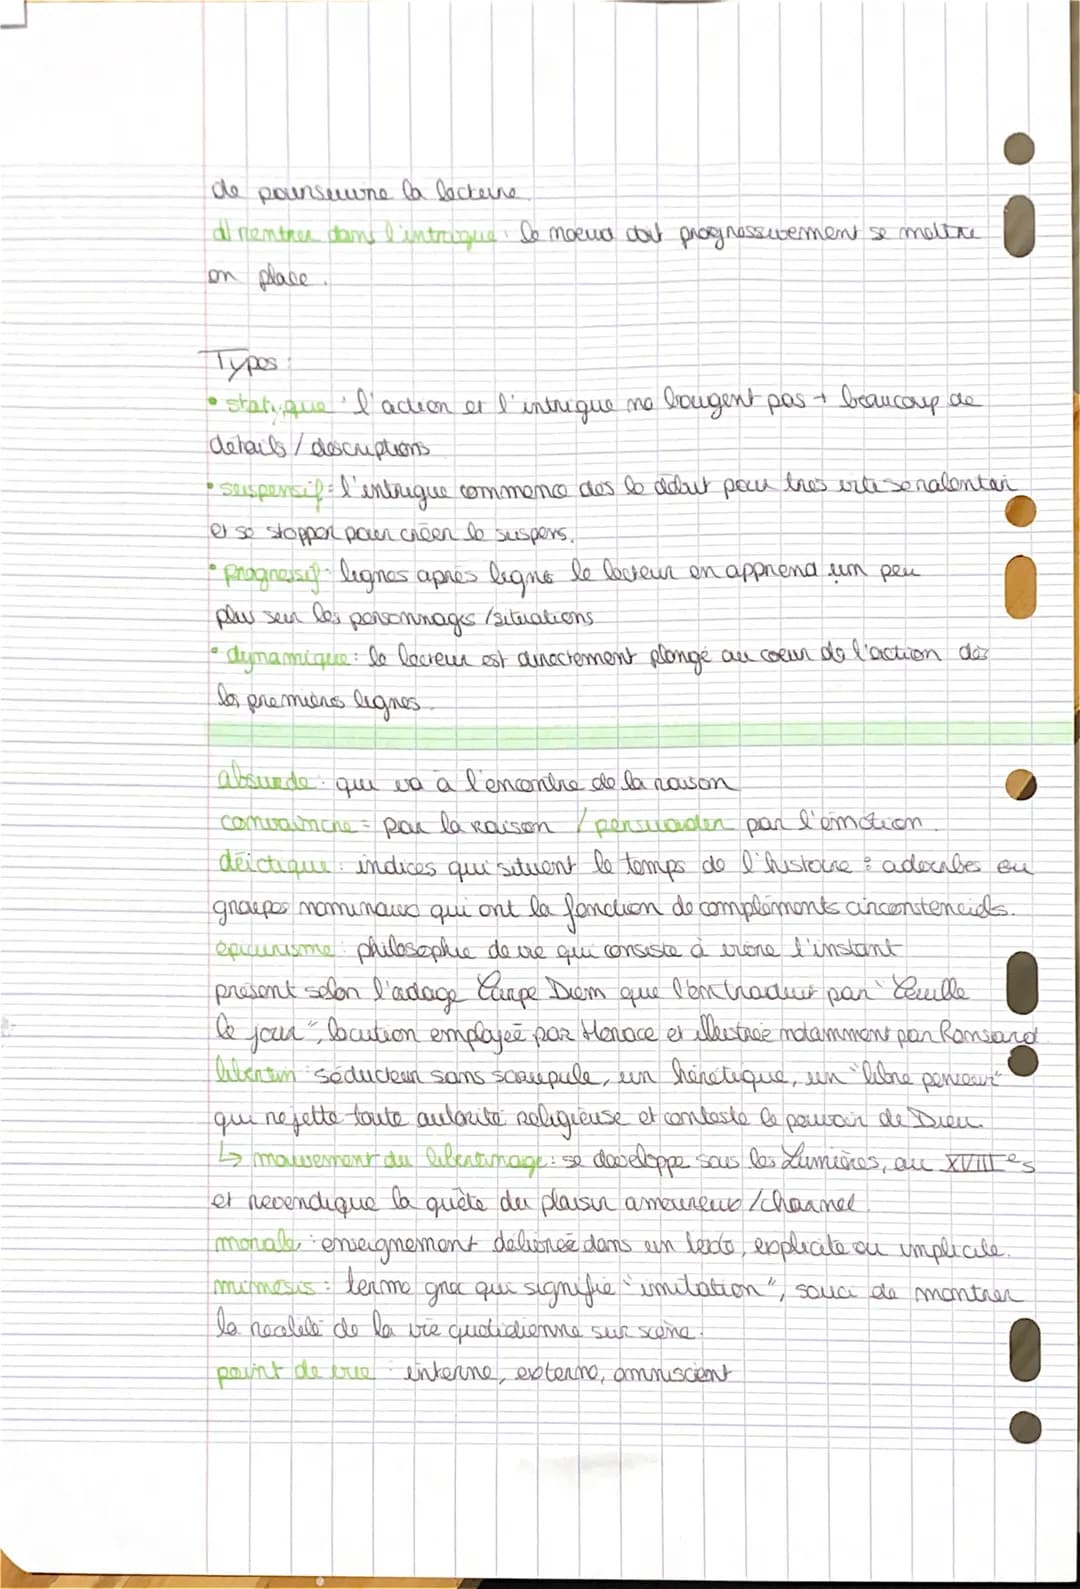 de poursuivre la lecture.
d) rentrer dans l'intrigue : le noeud doit progressivement se mettre
en place.
Types :
• statique : l'action et l'intrigue ne bougent pas + beaucoup de
détails / descriptions
• suspensif : l'intrigue commence dès le début pour très vite se ralentir
et se stopper pour créer le suspens.
• progressif : lignes après ligne le lecteur en apprend un peu
plus sur les personnages / situations
• dynamique : le lecteur est directement plongé au coeur de l'action dès
les premières lignes.
absurde : qui va à l'encontre de la raison
convaincre = par la raison / persuader par l'émotion.
déictique : indices qui situent le temps de l'histoire : adverbes ou
groupes nominaux qui ont la fonction de compléments circonstanciels.
épicurisme : philosophie de vie qui consiste à vivre l'instant
présent selon l'adage Carpe Diem que l'on traduit par "Cueille
le jour", locution employée par Horace et illustrée notamment par Ronsard
libertin : séducteur sans scrupule, un hérétique, un "libre penseur"
qui rejette toute autorité religieuse et conteste le pouvoir de Dieu.
↳ mouvement du libertinage : se développe sous les Lumières, au XVIIIe s
et revendique la quête du plaisir amoureux / charnel.
morale : enseignement délivrée dans un texte, explicite ou implicite.
mimesis : terme grec qui signifie "imitation", souci de montrer
la réalité de la vie quotidienne sur scène.
point de vue : interne, externe, omniscient